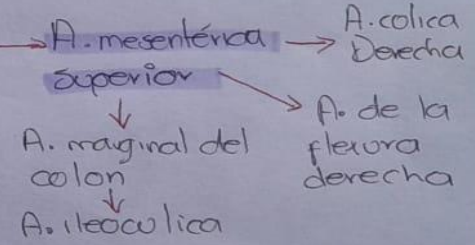 A. mesentérica
superior
A. colica
Derecha
A. de la
flexura
derecha
A. marginal del
colon
A. ileocolica